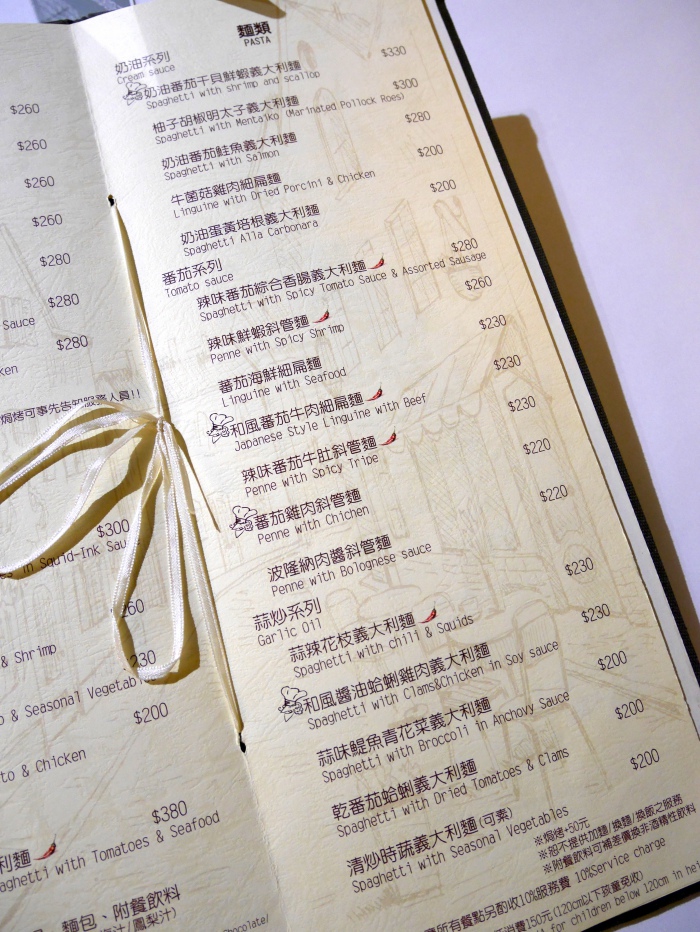 $260
$260
$260
$260
$280
$280
Sauce
$280
焗烤可事先告知服務人員!!
$300
in Squid-Ink Sau
& Shrimp
& Seasonal Vegetabl
$200
to & Chicken
$380
利麵
aghetti with Tomatoes & Seafood
麵包、附餐飲料
麵類
PASTA
奶油系列
Cream sauce
奶油番茄干貝鮮蝦義大利麵 $330
Spaghetti with shrimp and scallop
柚子胡椒明太子義大利麵 $300
Spaghetti with Mentaiko (Marinated Pollock Roes)
奶油番茄鮭魚義大利麵 $280
Spaghetti with Salmon
牛菌菇雞肉細扁麵 $200
Linguine with Dried Porcini & Chicken
奶油蛋黃培根義大利麵 $200
Spaghetti Alla Carbonara
番茄系列
Tomato sauce
辣味番茄綜合香腸義大利麵 $280
Spaghetti with Spicy Tomato Sauce & Assorted Sausage
辣味鮮蝦斜管麵 $260
Penne with Spicy Shrimp
蕃茄海鮮細扁麵 $230
Linguine with Seafood
和風蕃茄牛肉細扁麵 $230
Japanese Style Linguine with Beef
辣味蕃茄牛肚斜管麵 $230
Penne with Spicy Tripe
蕃茄雞肉斜管麵 $220
Penne with Chichen
波隆納肉醬斜管麵 $220
Penne with Bolognese sauce
蒜炒系列
Garlic Oil
蒜辣花枝義大利麵 $230
Spaghetti with chili & Squids
和風醬油蛤蜊雞肉義大利麵 $230
Spaghetti with Clams&Chicken in Soy sauce
蒜味鯷魚青花菜義大利麵 $200
Spaghetti with Broccoli in Anchovy Sauce
乾番茄蛤蜊義大利麵 $200
Spaghetti with Dried Tomatoes & Clams
清炒時蔬義大利麵(可素) $200
Spaghetti with Seasonal Vegetables
※焗烤+50元
※恕不提供加麵/換麵/換飯之服務
※附餐飲料可補差價換非酒精性飲料
所有餐點另酌收10%服務費 10%Service charge
消費150元(120cm以下孩童免收)
for children below 120cm in hei